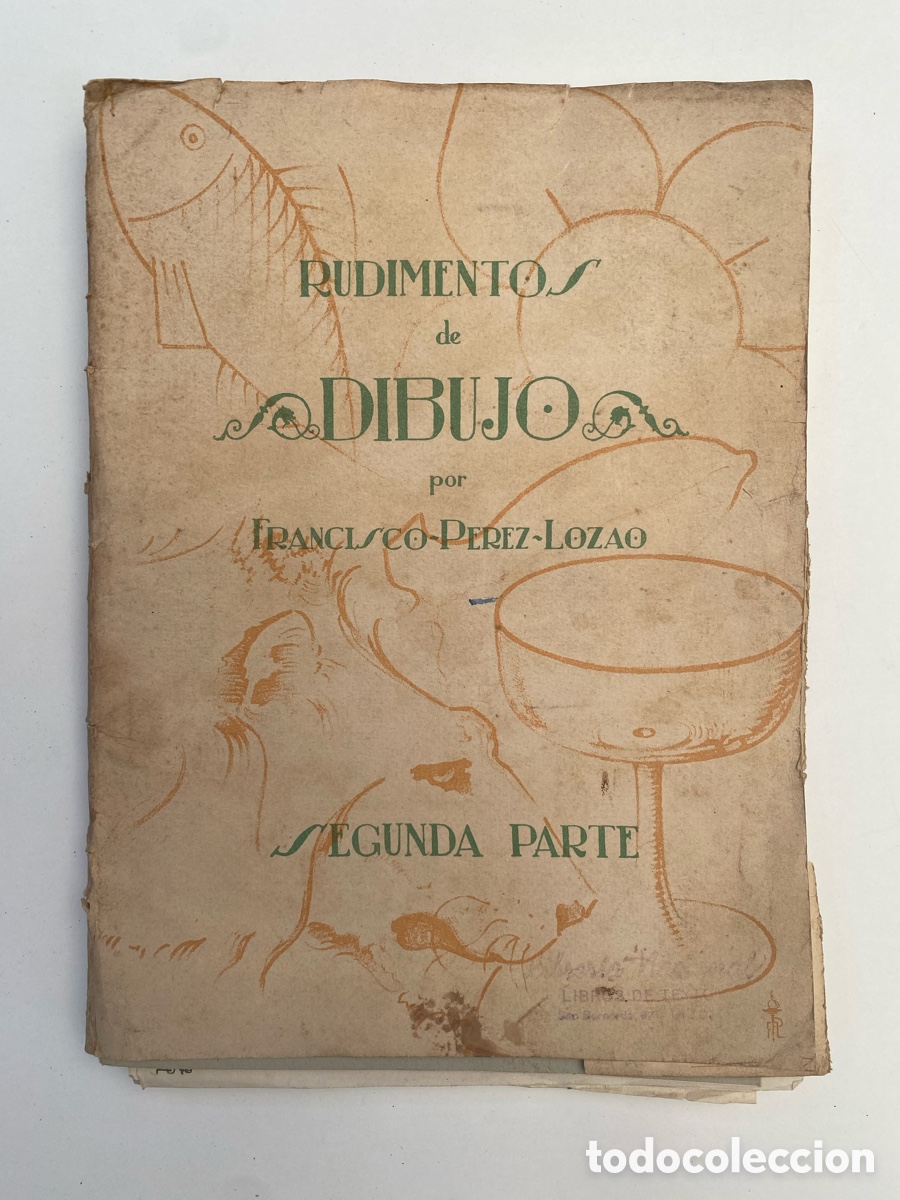 RUDIMENTOS
de
DIBUJO
por
FRANCISCO-PEREZ-LOZAO
SEGUNDA PARTE
LIBROS DE TEXTO
San Bernardo,
todocoleccion